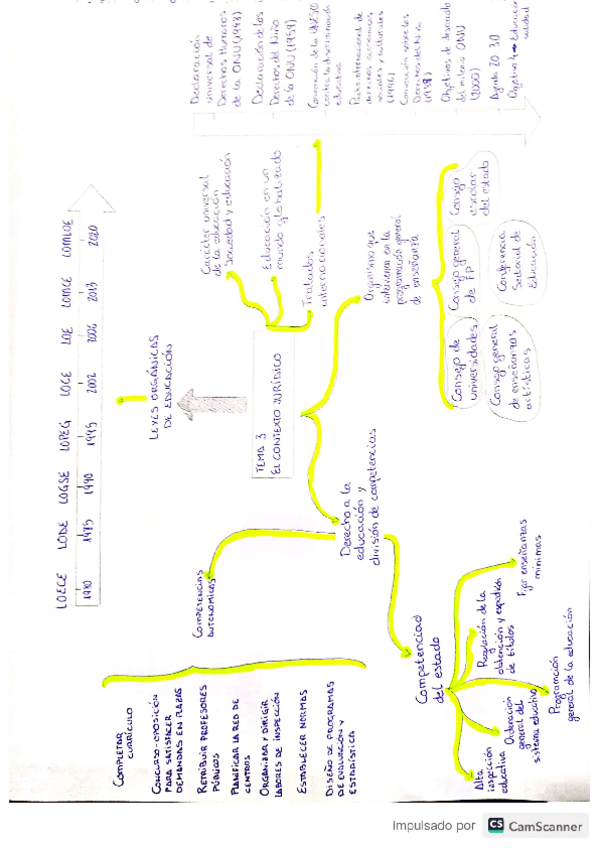 LOECE
LODE
LOGSE
LOPEG
LOCE
LOE
LOMCE
LOMLOE
1985
1990
1995
2002
2006
2013
2020
LEYES ORGÁNICAS
DE EDUCACIÓN
TEMA 3
EL CONTEXTO JURÍDICO
Carácter universal
de la educación
Sociedad y educación
Educación en un
mundo globalizado
Tratados
internacionales
Declaración
universal de
Derechos Humanos
de la ONU (1948)
Declaración de los
Derechos del Niño
de la ONU (1959)
Convención de la UNESCO
contra la discriminación
educativa
Pacto internacional de
derechos económicos
sociales y culturales
(1966)
Convención sobre los
Derechos del Niño
Objetivos de desarrollo
del milenio ONU
(2000)
Agenda 2030
Objetivo 4 → Educación
calidad
Organismos que
intervienen en la
programación general
de enseñanza
Consejo
escolar
del estado
Consejo general
de FP
Consejo de
universidades
Conferencia
Sectorial de
Educación
Consejo general
de enseñanzas
artísticas
Derecho a la
educación y
división de competencias
COMPETENCIAS
AUTONÓMICAS
COMPLETAR
CURRÍCULO
CONCURSO-OPOSICIÓN
PARA SATISFACER
DEMANDAS EN PLAZAS
RETRIBUIR PROFESORES
PÚBLICOS
PLANIFICAR LA RED DE
CENTROS
ORGANIZAR Y DIRIGIR
LABORES DE INSPECCIÓN
ESTABLECER NORMAS
DISEÑO DE PROGRAMAS
DE EVALUACIÓN Y
ESTADÍSTICA
Competenciad
del estado
Alta
inspección
educativa
Ordenación
general del
sistema educativo
Programción
general de la educación
Regulación de la
obtención y expedición
de títulos
Fijar enseñanzas
mínimas
Impulsado por CS CamScanner